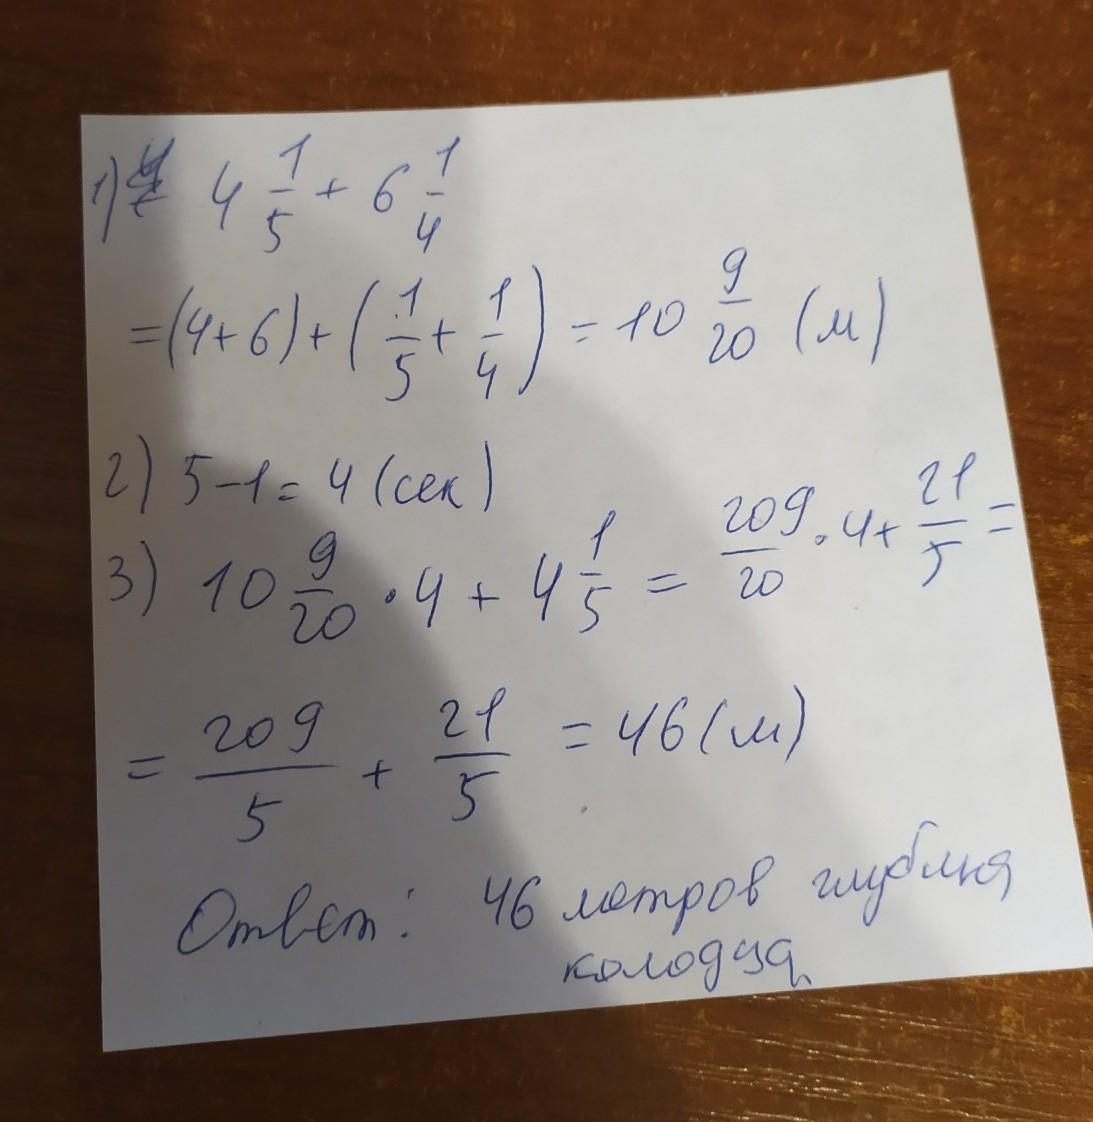 1) 4 1/5 + 6 1/4
=(4+6)+(1/5+1/4)=10 9/20 (м)
2) 5-1=4(сек)
3) 10 9/20·4+4 1/5=209/20·4+21/5=
=209/5+21/5=46(м)
Ответ: 46 метров глубина
колодца